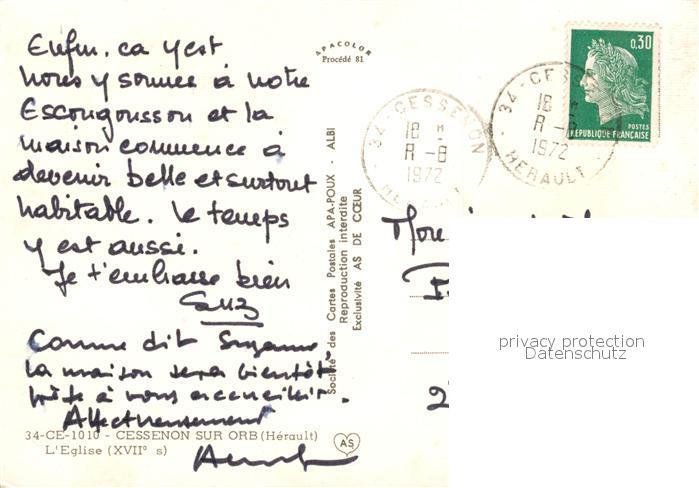 Enfin. ca y est
nous y somme à notre
Escongousson et la
maison commence à
devenir belle et surtout
habitable. Le temps
y est aussi.
Je t'embrasse bien
Suz
Comme dit Suzanne
la maison sera bientôt
prête à vous accueillir.
Affectueusement
34-CE-1010 - CESSENON SUR ORB (Hérault)
L'Eglise (XVII° s)
AS
APACOLOR
Procédé 81
Société des Cartes Postales APA-POUX - ALBI
Reproduction interdite
Exclusivité AS DE CŒUR
34 - CESSENON
18 H
8 - 8
1972
HERAULT
34 - CESSE
18 H
1972
HERAULT
0,30
POSTES
REPUBLIQUE FRANÇAISE
privacy protection
Datenschutz